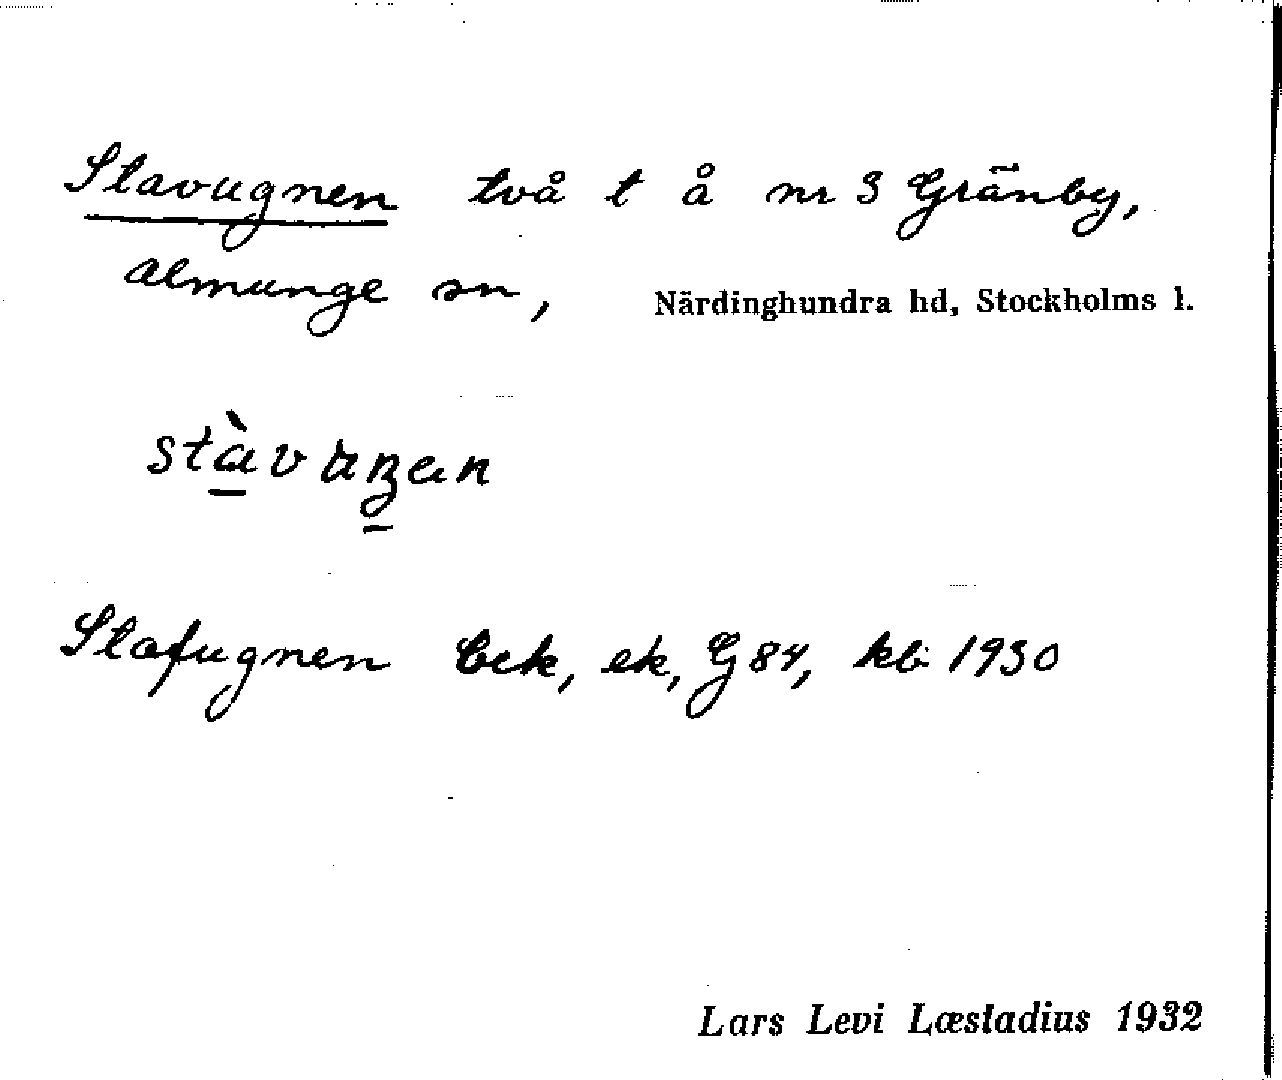 Stavugnen två t å nr 3 Gränby,
almunge sn, Närdinghundra hd, Stockholms l.
Stafugnen Eek, ek, G 84, kb 1930
Lars Levi Læstadius 1932